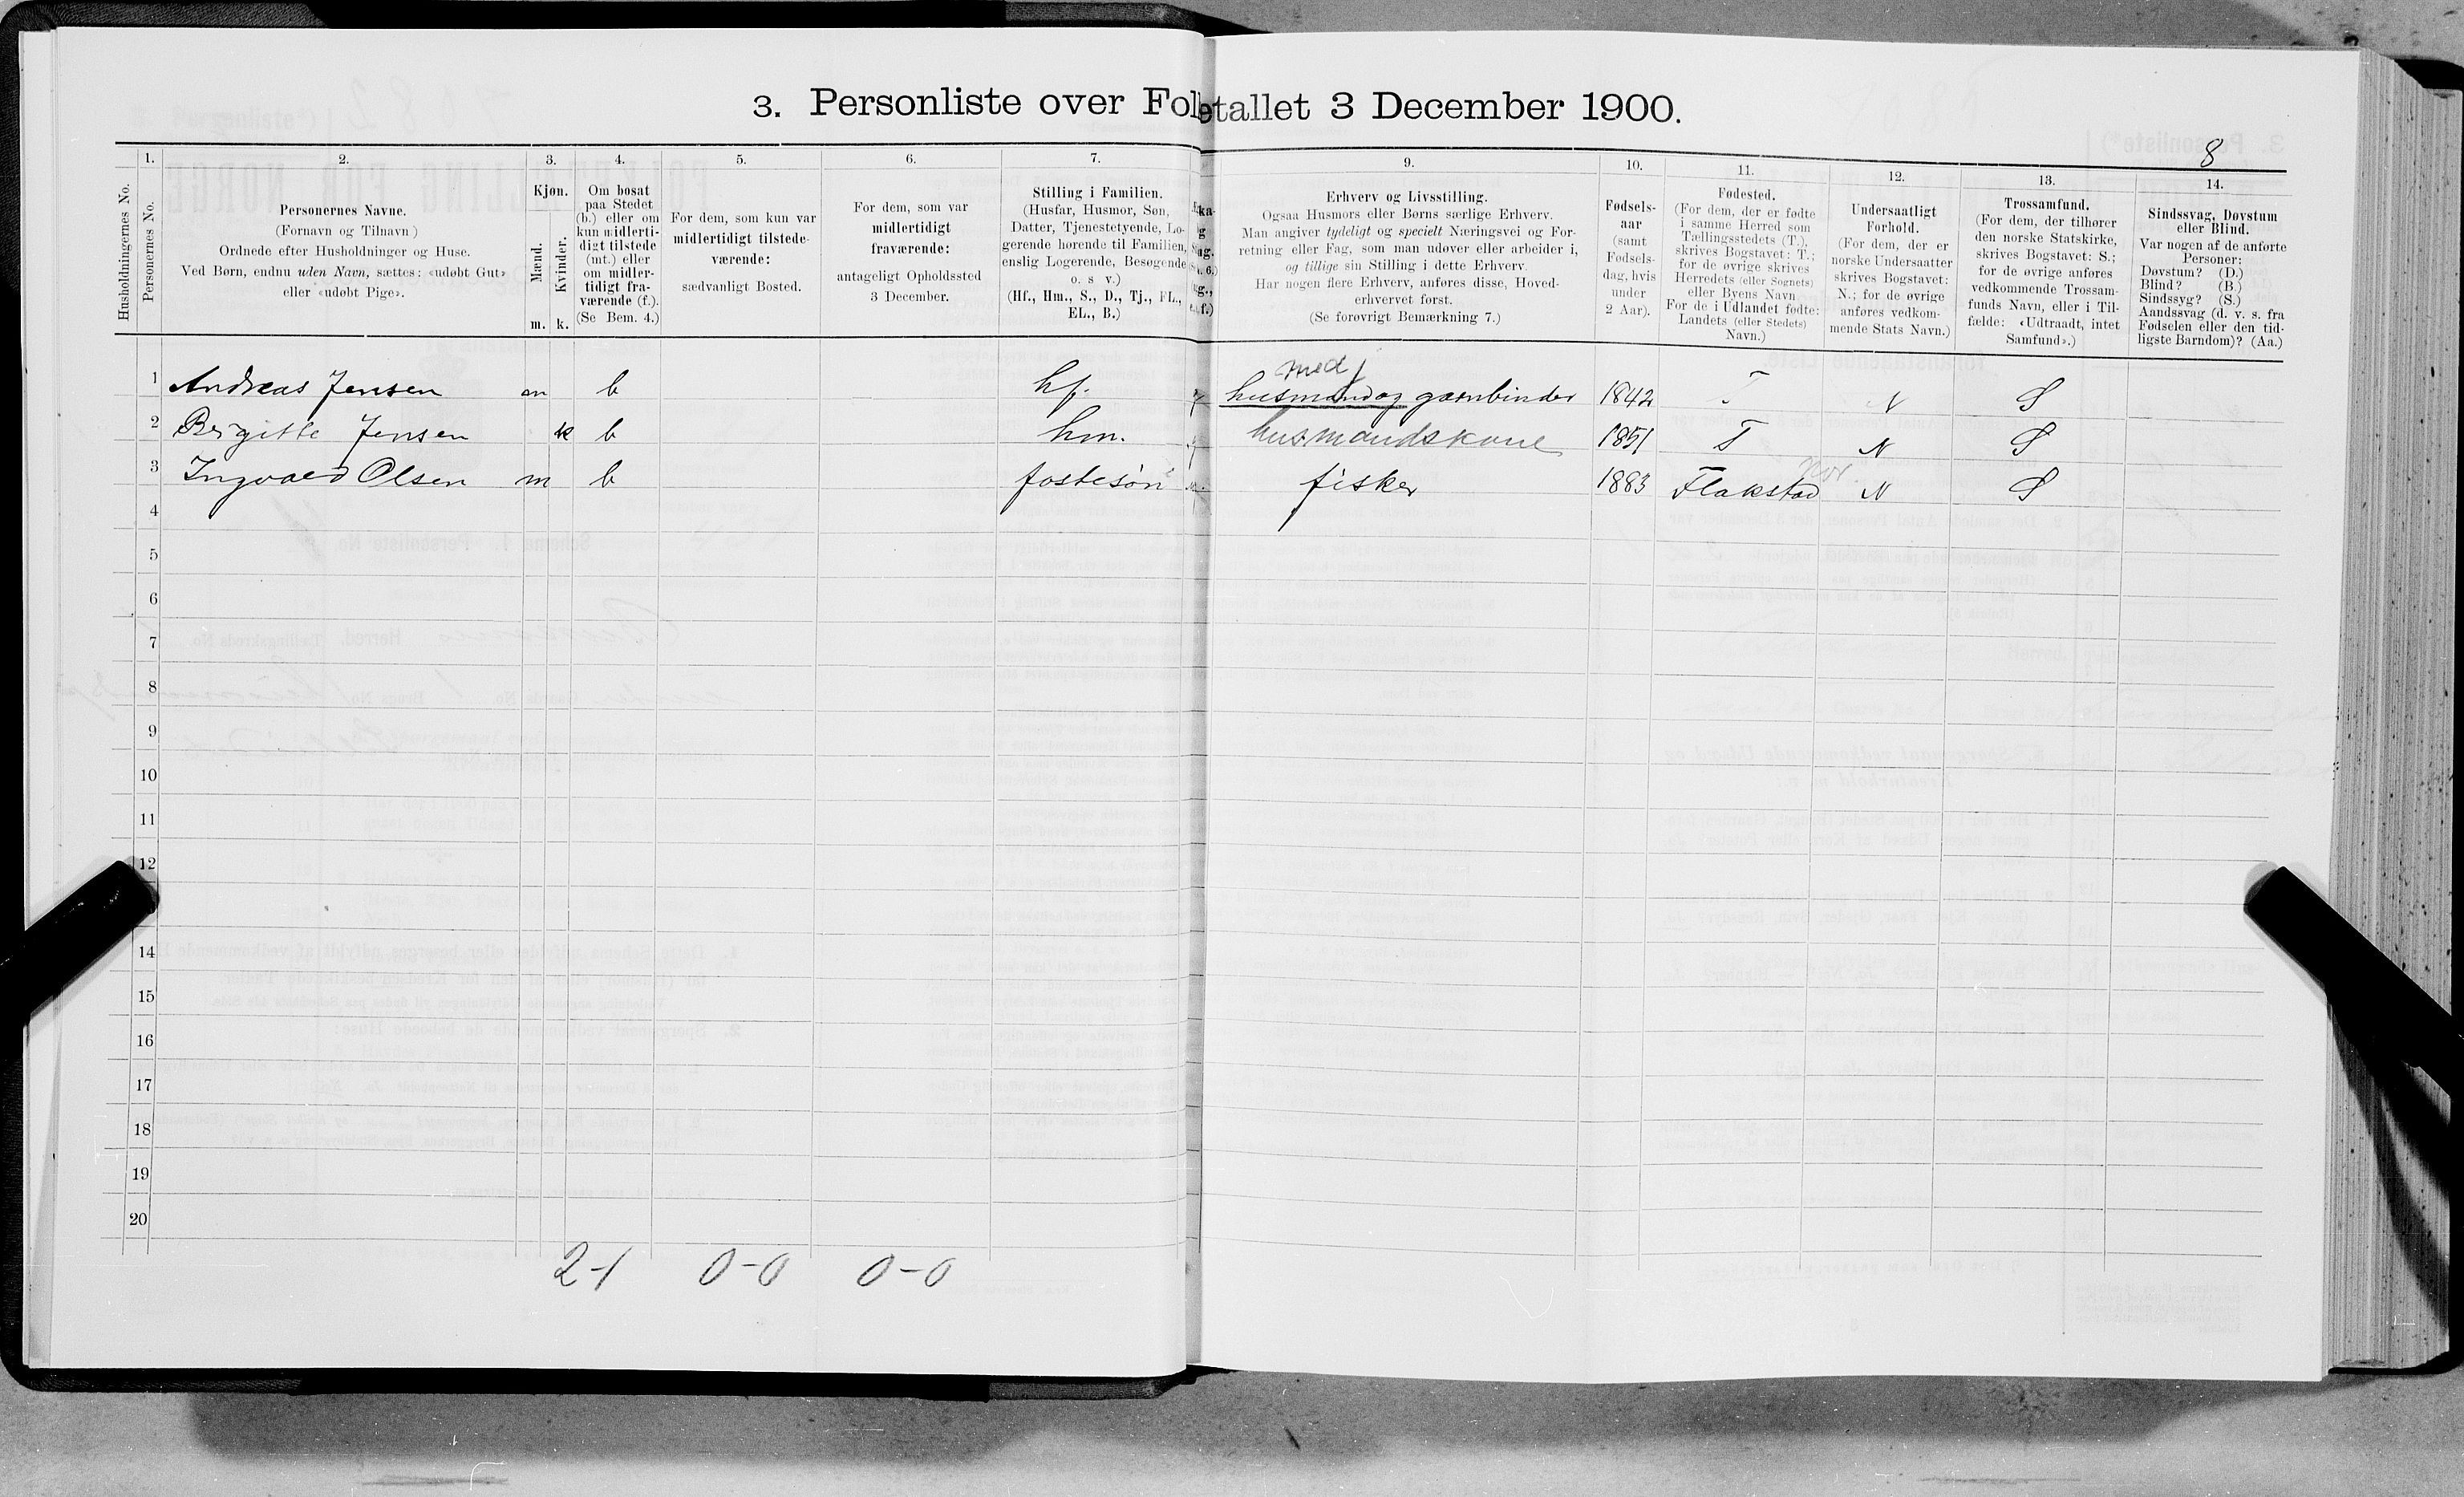 3. Personliste over Folketallet 3 December 1900.
8
1. 2. 3. 4. 5. 6. 7. 9. 10. 11. 12. 13. 14.
Husholdningernes No.
Personernes No.
Personernes Navne.
(Fornavn og Tilnavn)
Ordnede efter Husholdninger og Huse.
Ved Børn, endnu uden Navn, sættes: «udøbt Gut»
eller «udøbt Pige».
Kjøn.
Mænd.
Kvinder.
m. k.
Om bosat
paa Stedet
(b.) eller om
kun midlerti-
digt tilstede
(mt.) eller
om midler-
tidigt fra-
værende (f.).
(Se Bem. 4.)
For dem, som kun var
midlertidigt tilstede-
værende:
sædvanligt Bosted.
For dem, som var
midlertidigt
fraværende:
antageligt Opholdssted
3 December.
Stilling i Familien.
(Husfar, Husmor, Søn,
Datter, Tjenestetyende, Lo-
gerende hørende til Familien,
enslig Logerende, Besøgende
o. s v.)
(Hf., Hm., S., D., Tj., FL.,
EL., B.)
Erhverv og Livsstilling.
Ogsaa Husmors eller Børns særlige Erhverv.
Man angiver tydeligt og specielt Næringsvei og For-
retning eller Fag, som man udøver eller arbeider i,
og tillige sin Stilling i dette Erhverv.
Har nogen flere Erhverv, anføres disse, Hoved-
erhvervet først.
(Se forøvrigt Bemærkning 7.)
Fødsels-
aar
(samt
Fødsels-
dag, hvis
under
2 Aar).
Fødested.
(For dem, der er fødte
i samme Herred som
Tællingsstedets (T.),
skrives Bogstavet: T.;
for de øvrige skrives
Herredets (eller Sognets)
eller Byens Navn
For de i Udlandet fødte:
Landets (eller Stedets)
Navn.)
Undersaatligt
Forhold.
(For dem, der er
norske Undersaatter
skrives Bogstavet:
N.; for de øvrige
anføres vedkom-
mende Stats Navn.)
Trossamfund.
(For dem, der tilhører
den norske Statskirke,
skrives Bogstavet: S.;
for de øvrige anføres
vedkommende Trossam-
funds Navn, eller i Til-
fælde: «Udtraadt, intet
Samfund».)
Sindssvag, Døvstum
eller Blind.
Var nogen af de anførte
Personer:
Døvstum? (D.)
Blind? (B.)
Sindssyg? (S.)
Aandssvag (d. v. s. fra
Fødselen eller den tid-
ligste Barndom)? (Aa.)
med j
1 Andreas Jensen m b hf. husmand og garnbinder 1842 T N S
2 Bergitte Jensen k b hm. husmandskone 1851 T N S
3 Ingvald Olsen m b fostesøn fisker 1883 Flakstad N S
4
5
6
7
8
9
10
11
12
14
15
16
17
18
19
20
2-1 0-0 0-0